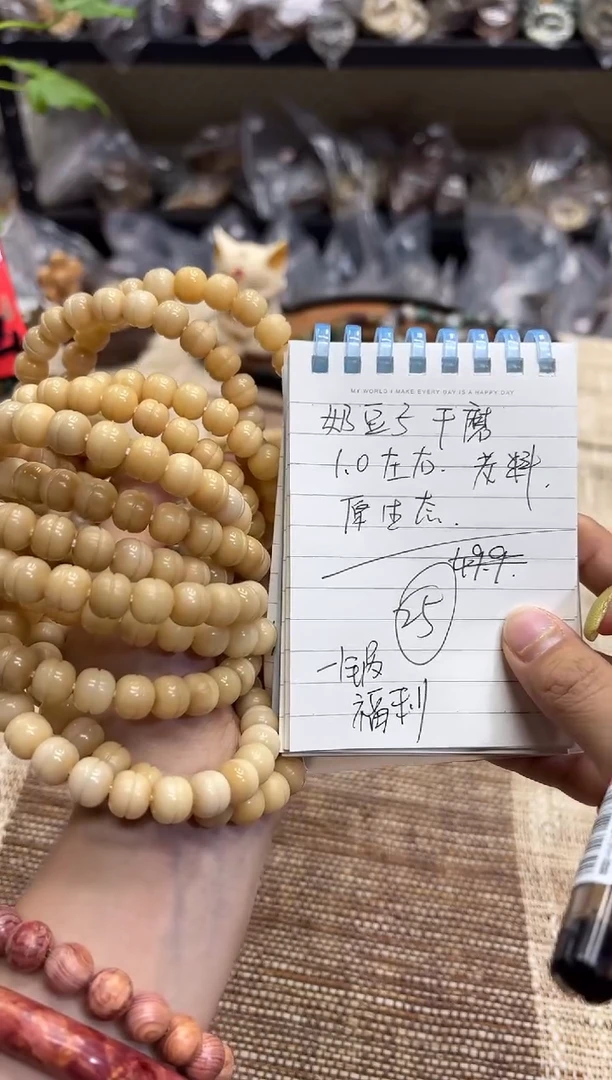 MY WORLD I MAKE EVERY DAY IS A HAPPY DAY
奶豆子干磨
1.0左右. 老料.
原生态.
49.9.
25
一手
福利